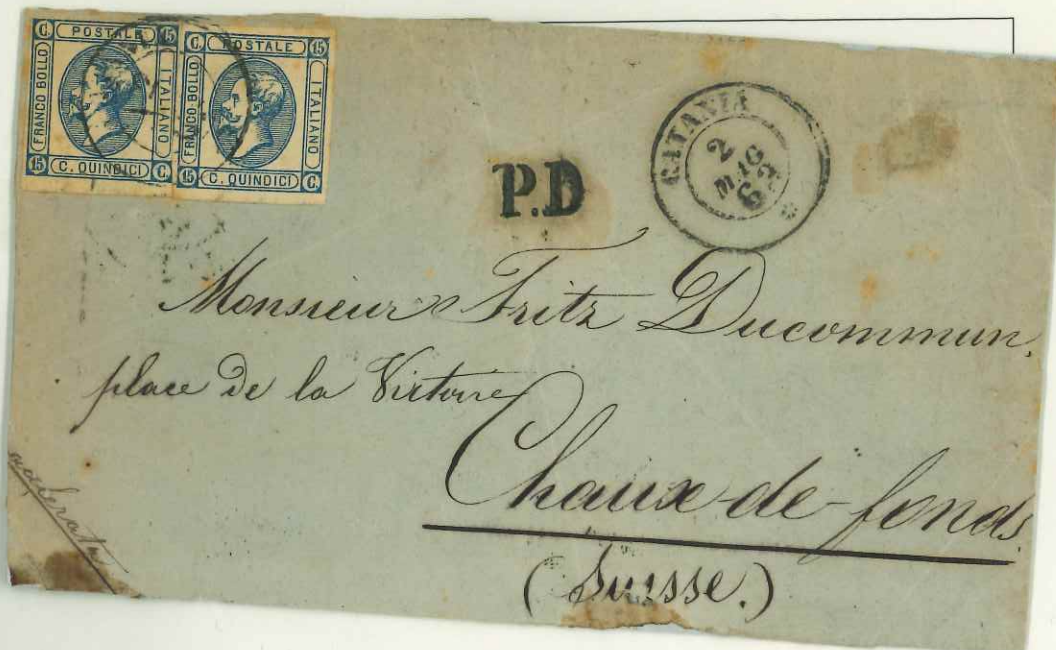 C. POSTALE 15
FRANCO BOLLO
ITALIANO
15 C. QUINDICI C.
C. POSTALE 15
FRANCO BOLLO
ITALIANO
15 C. QUINDICI C.
P.D
CATANIA
2
MAG
63
Monsieur Fritz Ducommun.
place De la Victoire
Chaux-de-fonds.
(Suisse.)